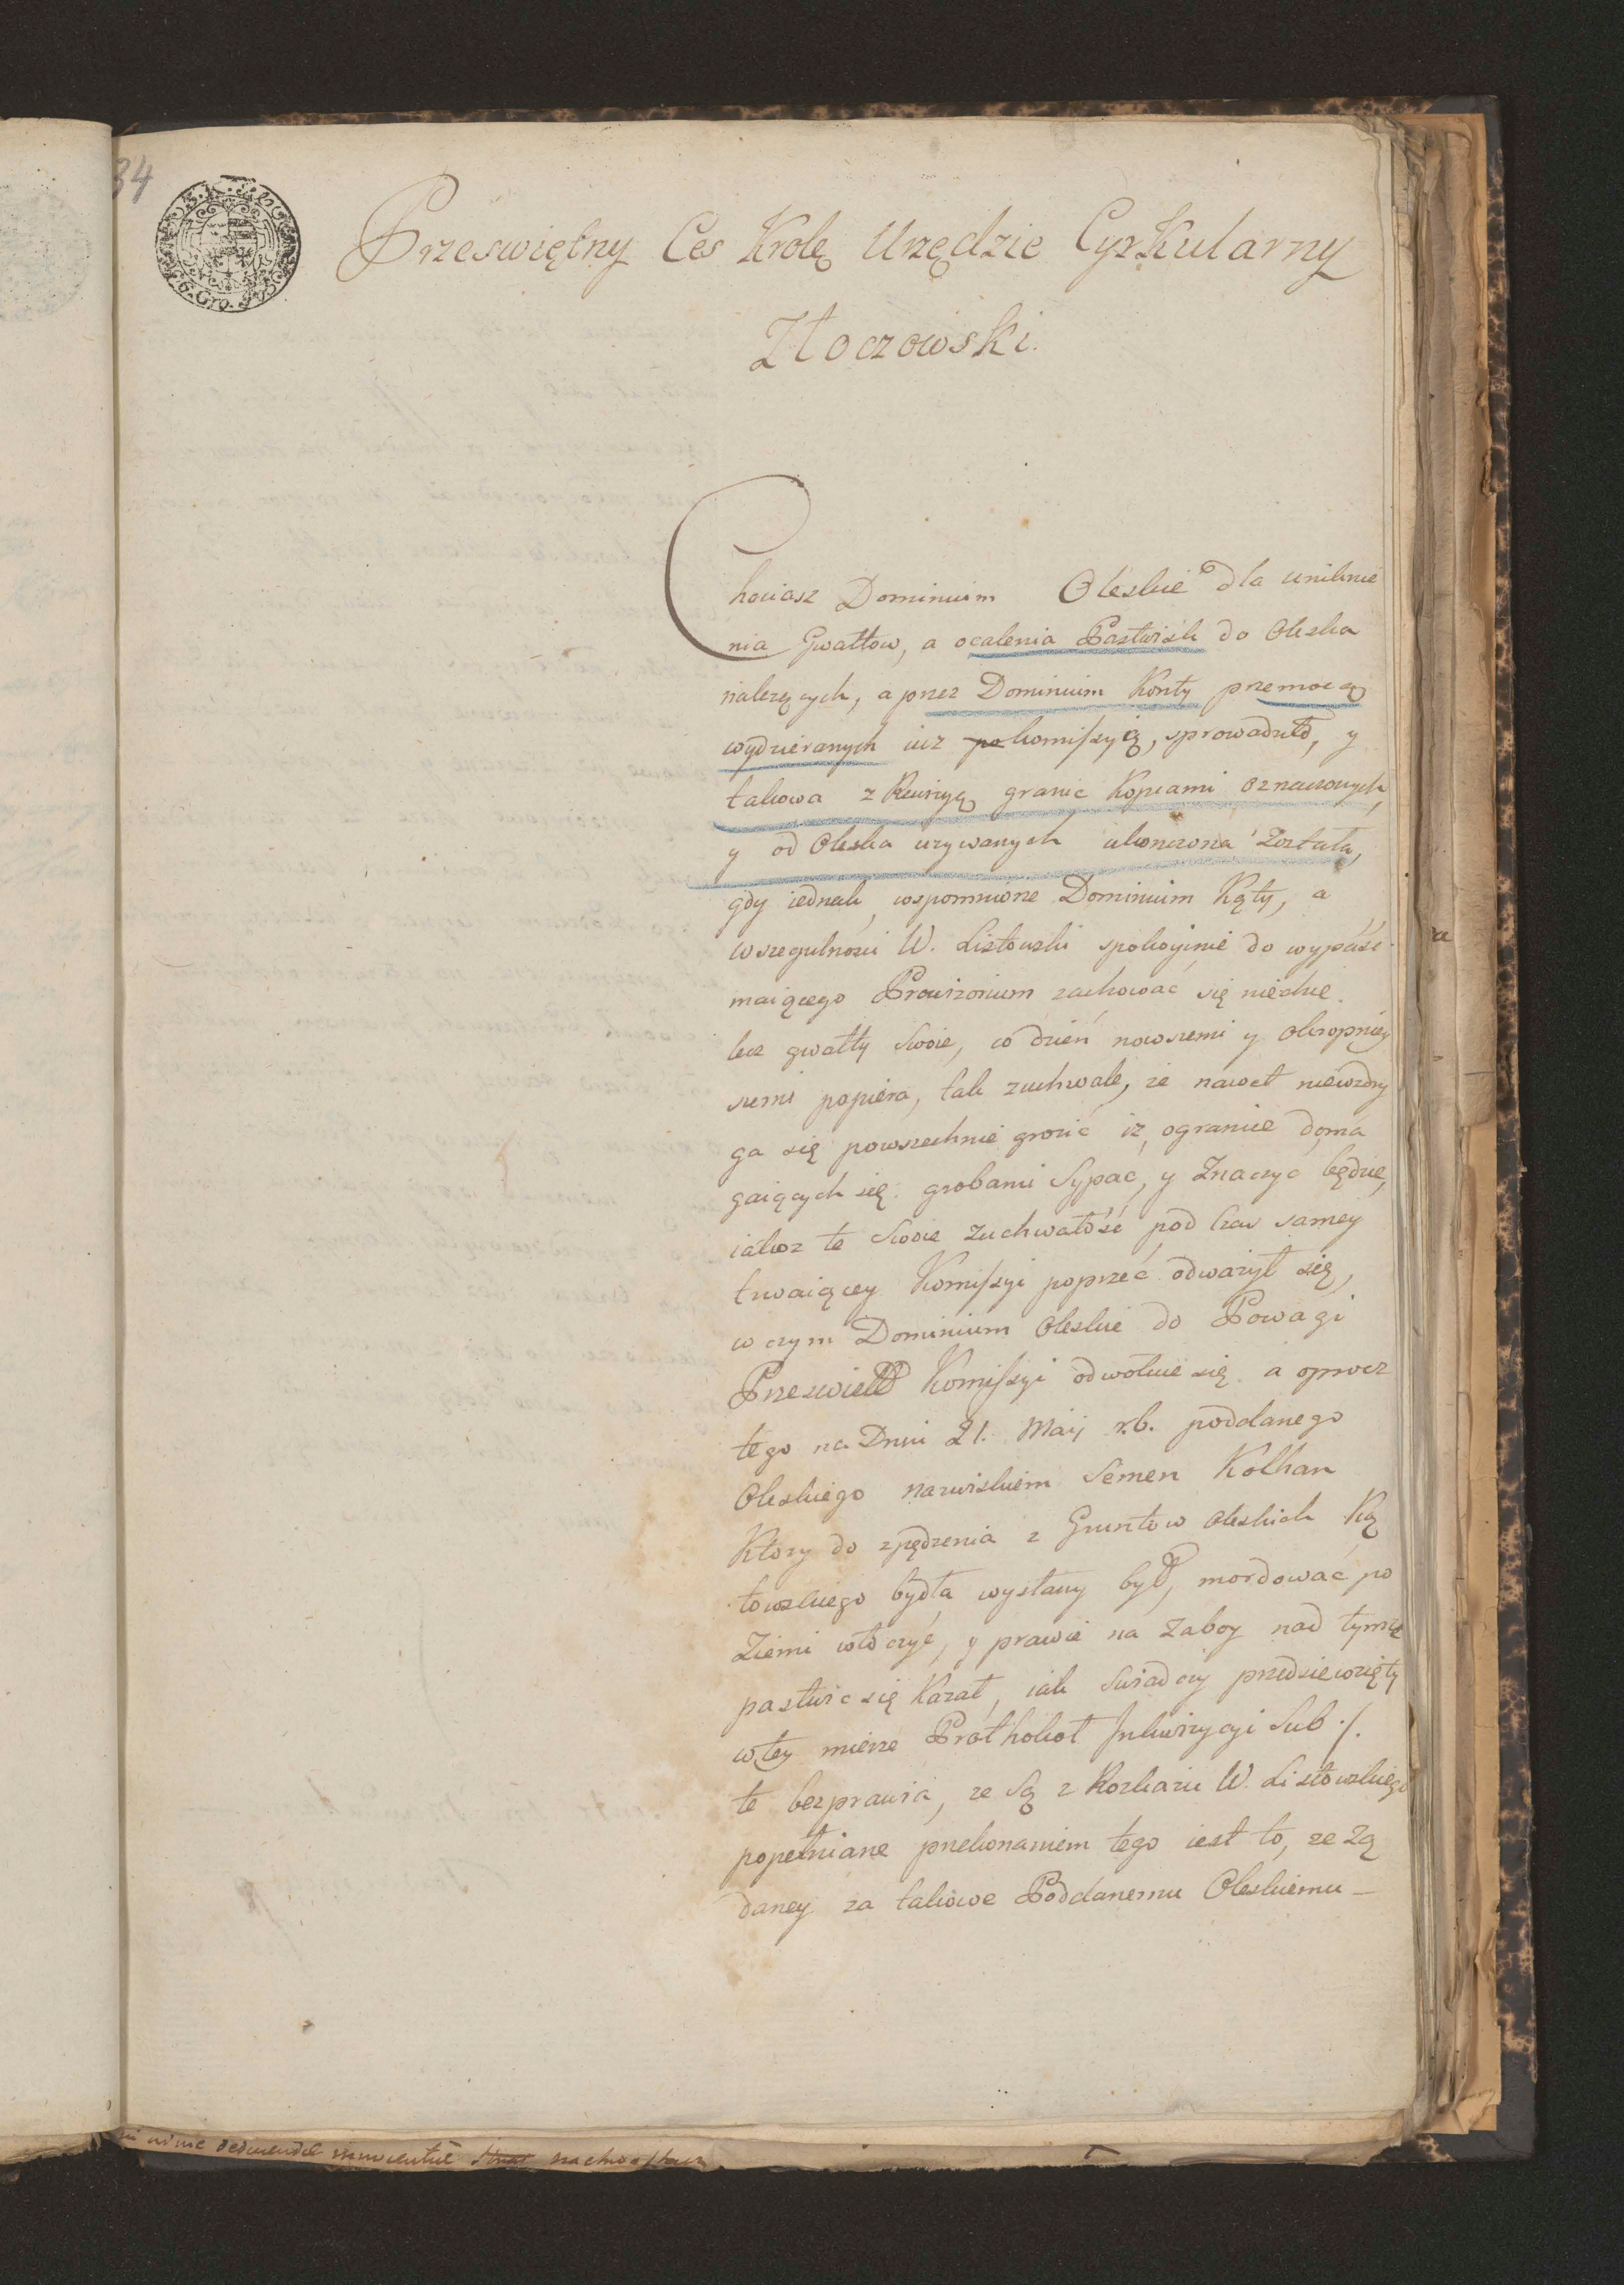 34
6. Gro.
Przeświętny Ces Krolę Urzędzie Cyrkularny
Złoczowski.
Chociasz Dominium Oleskie dla uniknie
nia Gwałtow, a ocalenia Pastwisk do Oleska
należących, a przez Dominium Konty przemocą
wydzieranych iuz komissyią, sprowadził, y
takowa z Rewizyą granic Kopcami oznaczonych,
y od Oleska uzywanych ukonczona Została,
gdy iednak, wspomnione Dominium Kąty, a
wszegulnosci W. Listowski spokoyinie do wypaść
maiącego Prowizorium zachować się niechce.
lecz gwałty Swoie, co dzień nowszemi y okropniey
szemi popiera, tak zuchwale, ze nawet niewzdry
ga się powszechnie grozić iz ogranice doma
gaiących się grobami Sypać, y Znaczyc będzie,
iakoz te Swoie Zuchwałość pod Czas samey
trwaiącey Komissyi poprzeć odważył się,
w czym Dominium Oleskie do Powagi
Komissyi odwołuie się. a oprocz
tego na Dniu 21. Maij r.b. poddanego
Oleskiego nazwiskiem Semen Kolhan
Ktory do zpędzenia z Gruntow oleskich Ką
towskiego bydła wysłany był, mordować po
Ziemi włoczyć, y prawie na Zaboy nad tymże
pastwic się Kazał, iak Swiadczy przedsiewzięty
w tey mierze Prothokoł Inkwizycyi Sub ·/.
te bezprawia, ze Są z Rozkazu W. Listowskiego
popełniane przekonaniem tego iest to, ze Zą
daney za takowe Poddanemu Oleskiemu —